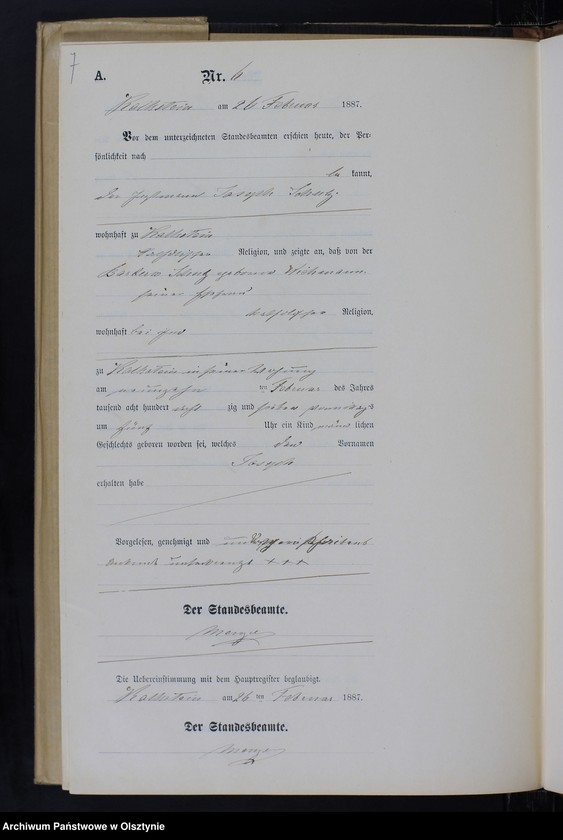 7
A. Nr. 6
Kalkstein am 26 Februar 1887.
Vor dem unterzeichneten Standesbeamten erschien heute, der Per-
sönlichkeit nach
be kannt,
der Joseph
wohnhaft zu Kalkstein
katholischer Religion, und zeigte an, daß von der
Barbara geborene
seiner Ehefrau
katholischer Religion,
wohnhaft bei ihm
zu Kalkstein in seiner Wohnung
am neunzehn ten Februar des Jahres
tausend acht hundert acht zig und sieben
um fünf Uhr ein Kind männ lichen
Geschlechts geboren worden sei, welches den Vornamen
Joseph
erhalten habe
Vorgelesen, genehmigt und Schreibens
unterkreuzt + + +
Der Standesbeamte.
Die Uebereinstimmung mit dem Hauptregister beglaubigt.
Kalkstein am 26 ten Februar 1887.
Der Standesbeamte.
Archiwum Państwowe w Olsztynie